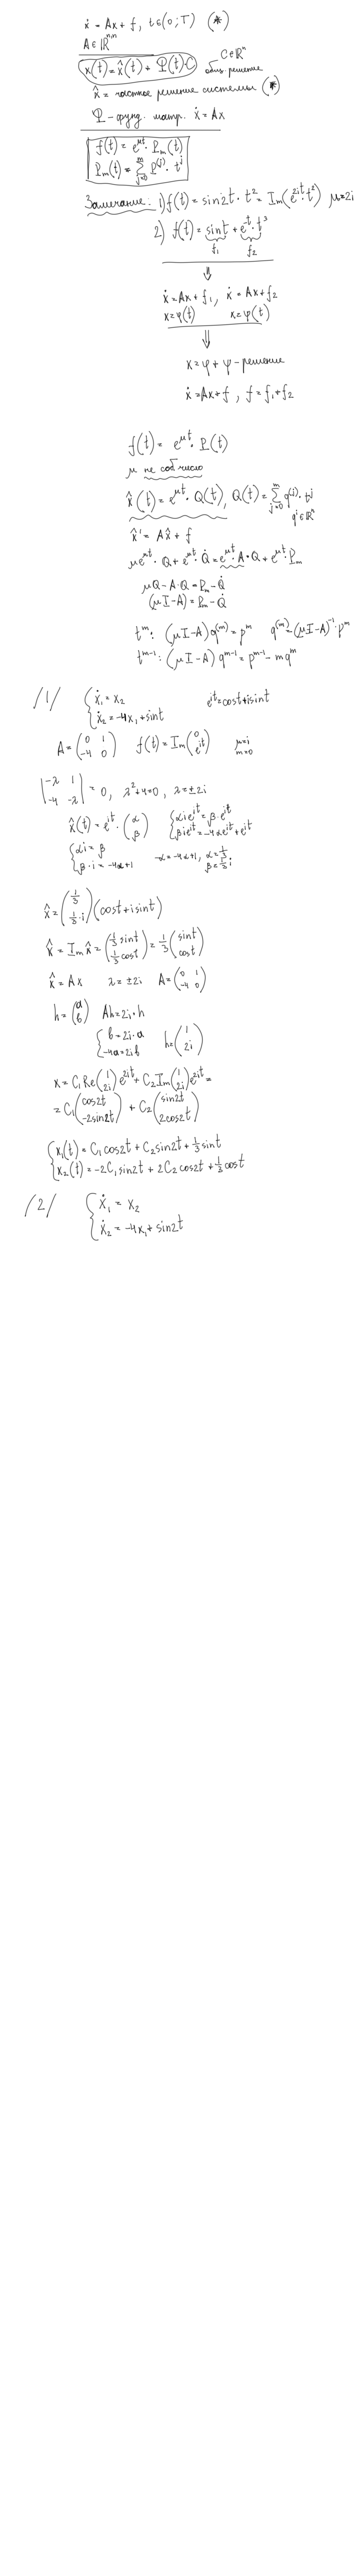 ẋ = Ax + f, t∈(0;T) (*)
A∈ℝⁿ'ⁿ
x(t) = x̂(t) + Φ(t)·C C∈ℝⁿ
общ. решение
x̂ = частное решение системы (*)
Φ - фунд. матр. ẋ = Ax
f(t) = e^{μt}·P_m(t)
P_m(t) = Σ_{j=0}^{m} p^{(j)}·t^j
Замечание: 1) f(t) = sin2t·t² = Im(e^{2it}·t²) μ=2i
2) f(t) = sint + e^{-t}·t³
f₁ f₂
⇓
ẋ = Ax + f₁, ẋ = Ax + f₂
x = φ(t) x = ψ(t)
⇓
x = φ + ψ - решение
ẋ = Ax + f, f = f₁ + f₂
f(t) = e^{μt}·P(t)
μ не соб число
x̂(t) = e^{μt}·Q(t), Q(t) = Σ_{j=0}^{m} q^{(j)}·t^j
q^j∈ℝⁿ
x̂' = Ax̂ + f
μe^{μt}·Q + e^{μt}·Q̇ = e^{μt}·A·Q + e^{μt}·P_m
μQ - A·Q = P_m - Q̇
(μI - A) = P_m - Q̇
t^m: (μI - A) q^{(m)} = p^m q^{(m)} = (μI - A)^{-1}·p^m
t^{m-1}: (μI - A) q^{m-1} = p^{m-1} - mq^m
/1/ { ẋ₁ = x₂ e^{it} = cost + isint
ẋ₂ = -4x₁ + sint
A = (0 1; -4 0) f(t) = Im(0; e^{it}) μ=i
m=0
|-λ 1; -4 -λ| = 0, λ² + 4 = 0, λ = ±2i
x̂(t) = e^{it}·(α; β) { αie^{it} = β·e^{it}
βie^{it} = -4αe^{it} + e^{it}
{ αi = β -α = -4α + 1, α = 1/3
β·i = -4α + 1 β = 1/3 i
x̂ = (1/3; 1/3·i)(cost + isint)
x̂ = Im x̂ = (1/3 sint; 1/3 cost) = 1/3 (sint; cost)
ẋ = Ax λ = ±2i A = (0 1; -4 0)
h = (a; b) Ah = 2i·h
{ b = 2i·a
-4a = 2ib h = (1; 2i)
x = C₁Re(1; 2i)e^{2it} + C₂Im(1; 2i)e^{2it} =
= C₁(cos2t; -2sin2t) + C₂(sin2t; 2cos2t)
{ x₁(t) = C₁cos2t + C₂sin2t + 1/3 sint
x₂(t) = -2C₁sin2t + 2C₂cos2t + 1/3 cost
/2/ { ẋ₁ = x₂
ẋ₂ = -4x₁ + sin2t